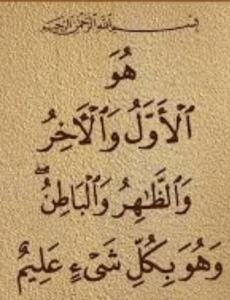 بسم الله الرحمن الرحيم
هُوَ
ٱلْأَوَّلُ وَٱلْآخِرُ
وَٱلظَّـٰهِرُ وَٱلْبَاطِنُ ۖ
وَهُوَ بِكُلِّ شَىْءٍ عَلِيمٌ